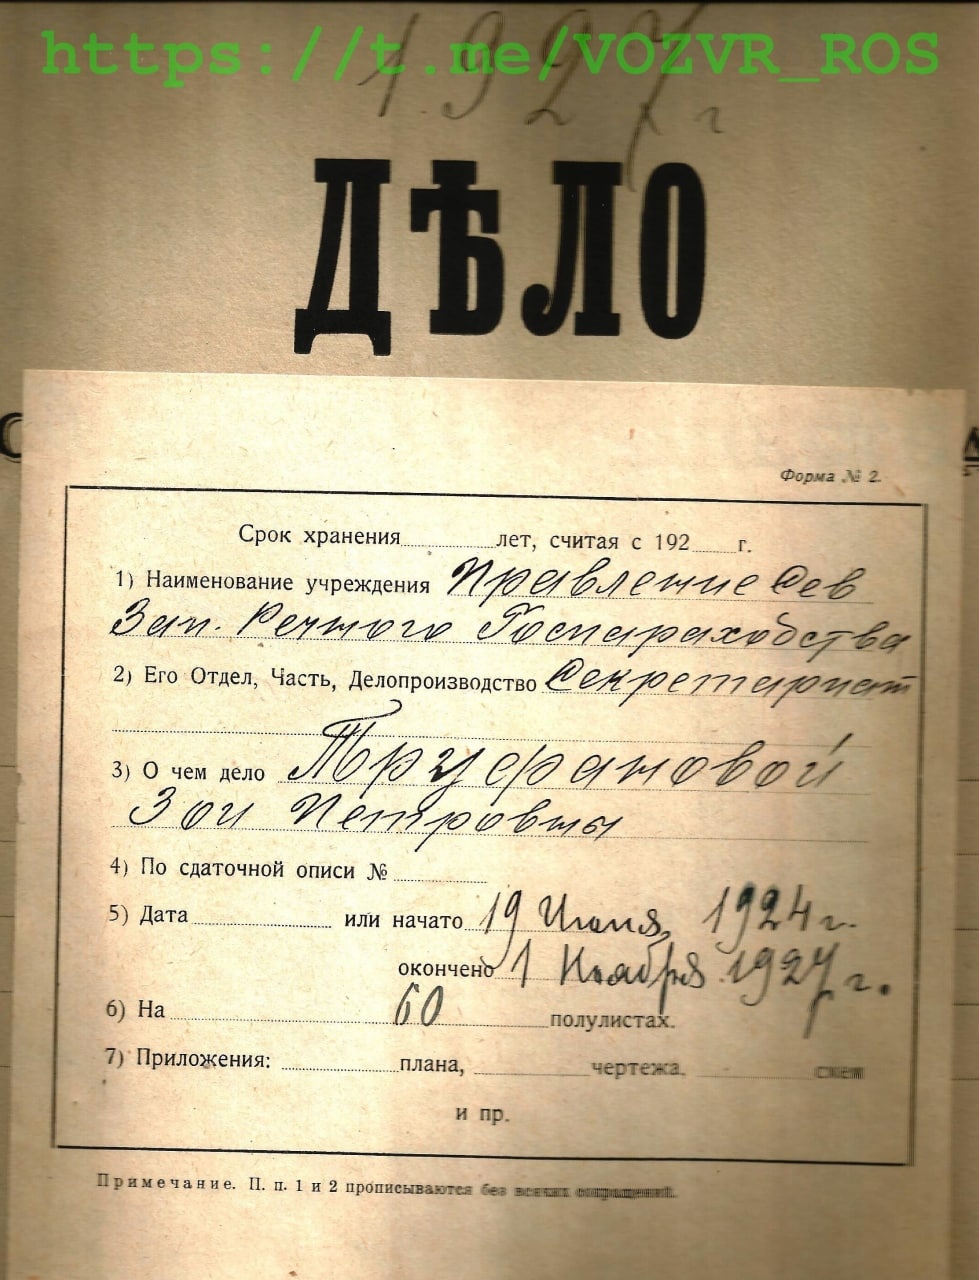 https://t.me/VOZVR_ROS
1927 г
ДѢЛО
Форма № 2.
Срок хранения лет, считая с 192 г.
1) Наименование учреждения Правление Сев
Зап. Речного Госпароходства
2) Его Отдел, Часть, Делопроизводство Секретариат
3) О чем дело Труфановой
Зои Петровны
4) По сдаточной описи №
5) Дата или начато 19 Июня 1924 г.
окончено 1 Ноября 1927 г.
6) На 60 полулистах.
7) Приложения: плана, чертежа, схем
и пр.
Примечание. П. п. 1 и 2 прописываются без всяких сокращений.